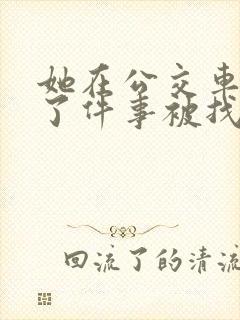 她在公交车
了件事被找
回流了的清流